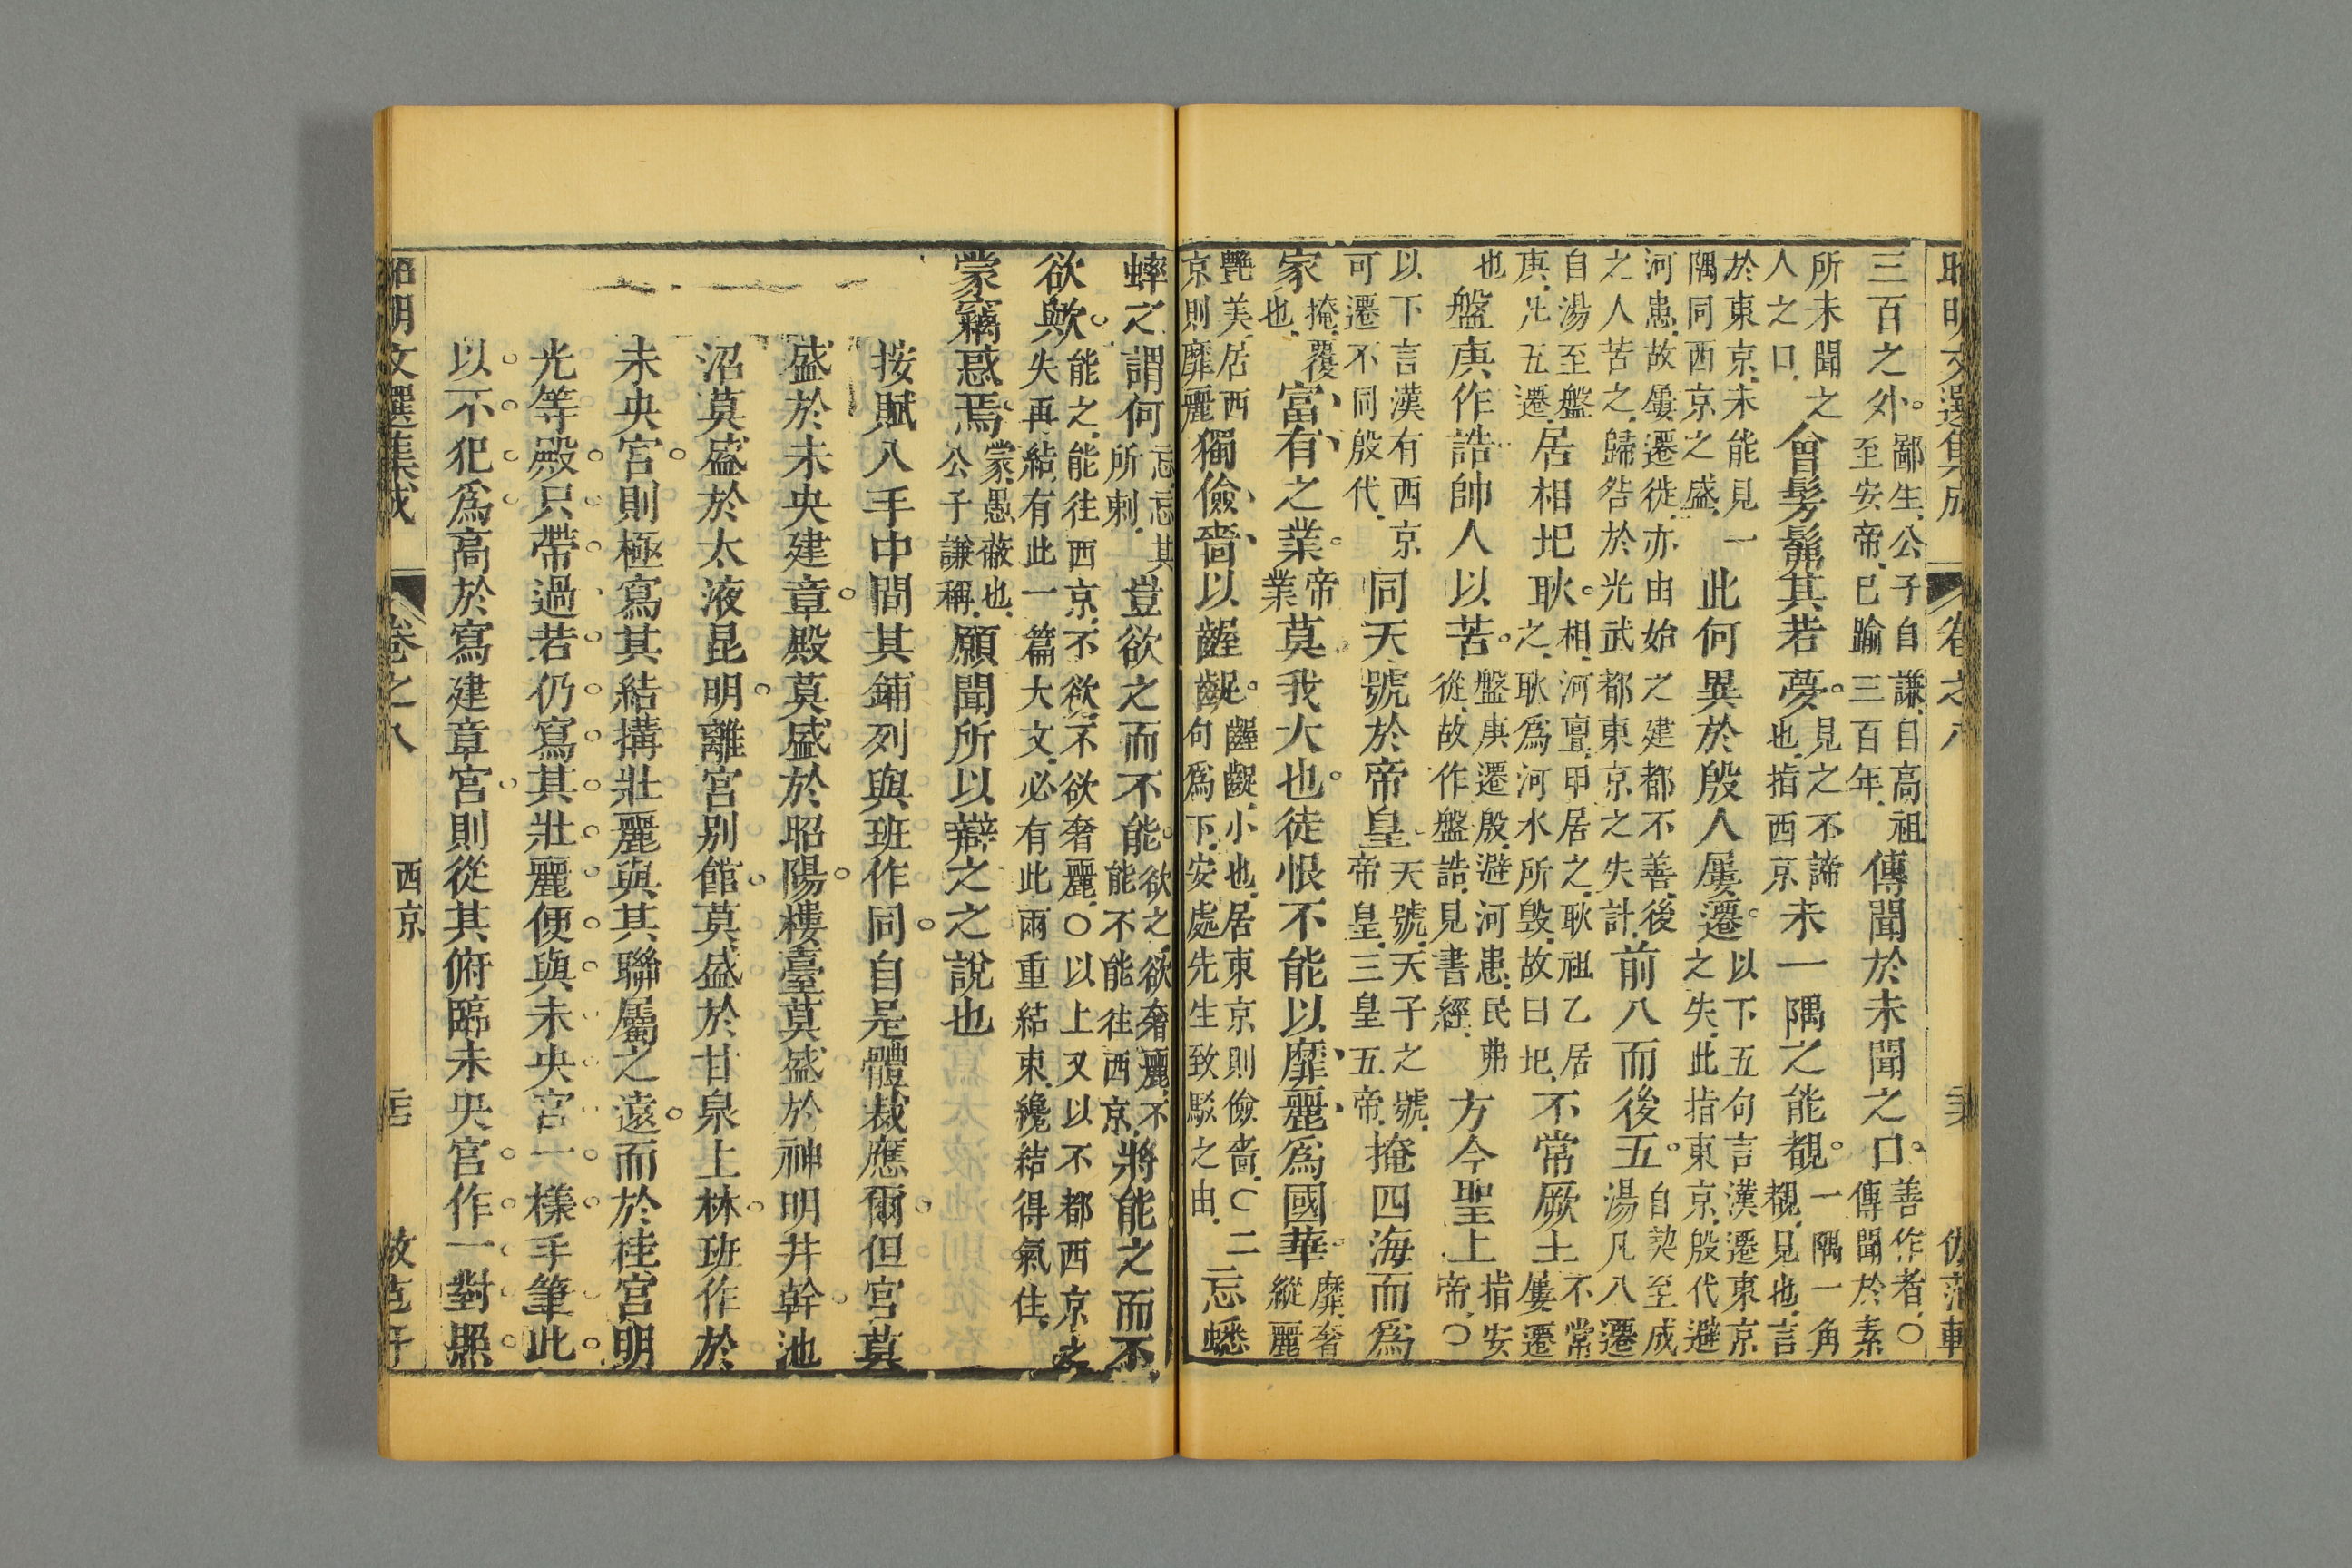 昭明文選集成　卷之八
三百之外。鄙生公子自謙自高祖
至安帝已踰三百年傳聞於未聞之口。善作者○
傳聞於素
所未聞之
人之口曾髣髴其若夢。見之不諦
也指西京未一隅之能覩。一隅一角
覩見也言
於東京未能見一
隅同西京之盛此何異於殷人屢遷。以下五句言漢遷東京
之失此指東京殷代避
河患故屢遷徙亦由始之建都不善後
之人苦之歸咎於光武都東京之失計前八而後五。自契至成
湯凡八遷
自湯至盤
庚凡五遷居相圯耿。相河亶甲居之耿祖乙居
之耿爲河水所毀故曰圯不常厥土不常
屢遷
也盤庚作誥帥人以苦。盤庚遷殷避河患民弗
從故作盤誥見書經方今聖上指安
帝○
以下言漢有西京
可遷不同殷代同天號於帝皇。天號天子之號
帝皇三皇五帝掩四海而爲
家掩覆
也富有之業。帝
業莫我大也。徒恨不能以靡麗爲國華。靡奢
縱麗
艷美居西
京則靡麗獨儉嗇以齷齪。齷齪小也居東京則儉嗇○二
句爲下安處先生致駁之由忘蟋
蟀之謂何忘忘其
所刺豈欲之而不能。欲之欲奢麗不
能不能往西京將能之而不
欲歟。能之能往西京不欲不欲奢麗○以上又以不都西京之
失再結有此一篇大文必有此兩重結束纔結得氣住
蒙竊惑焉。蒙愚蔽也
公子謙稱願聞所以辯之之說也
按賦入手中間其鋪列與班作同。自是體裁應爾。但宮莫
盛於未央建章。殿莫盛於昭陽。樓臺莫盛於神明井幹。池
沼莫盛於太液昆明。離宮别館。莫盛於甘泉上林。班作於
未央宮。則極寫其結搆壯麗與其聯屬之遠。而於桂宮明
光等殿。只帶過若仍寫其壯麗便與未央宮一樣手筆此
以不犯爲高於寫建章宮。則從其俯臨未央宮。作一對照
昭明文選集成　卷之八　西京